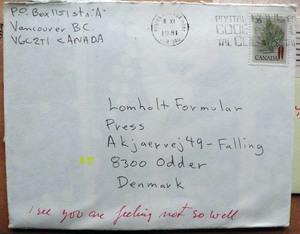 P.O. Box 1151 sta "A"
Vancouver B.C.
V6C2T1 CANADA
POSTAL
CODE
TAL CODE
CANADA
Lomholt Formular
Press
Akjaervej 49-Falling
8300 Odder
Denmark
i see you are feeling not so well